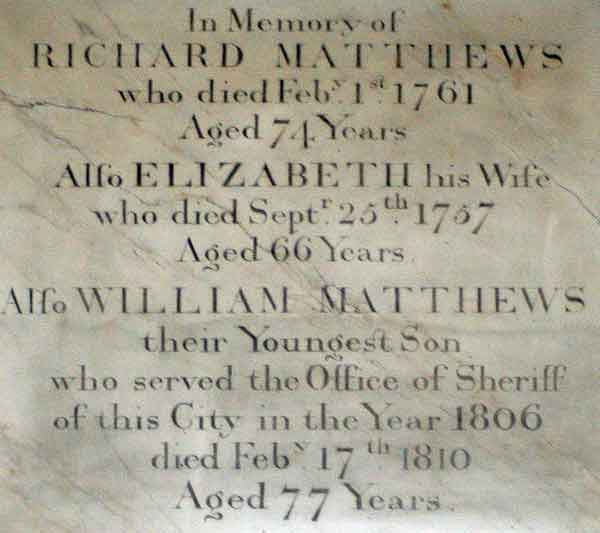 In Memory of
RICHARD MATTHEWS
who died Feb.y 1.st 1761
Aged 74 Years
Alſo ELIZABETH his Wife
who died Sept.r 25.th 1757
Aged 66 Years.
Alſo WILLIAM MATTHEWS
their Youngest Son
who served the Office of Sheriff
of this City in the Year 1806
died Feb.y 17th 1810
Aged 77 Years.